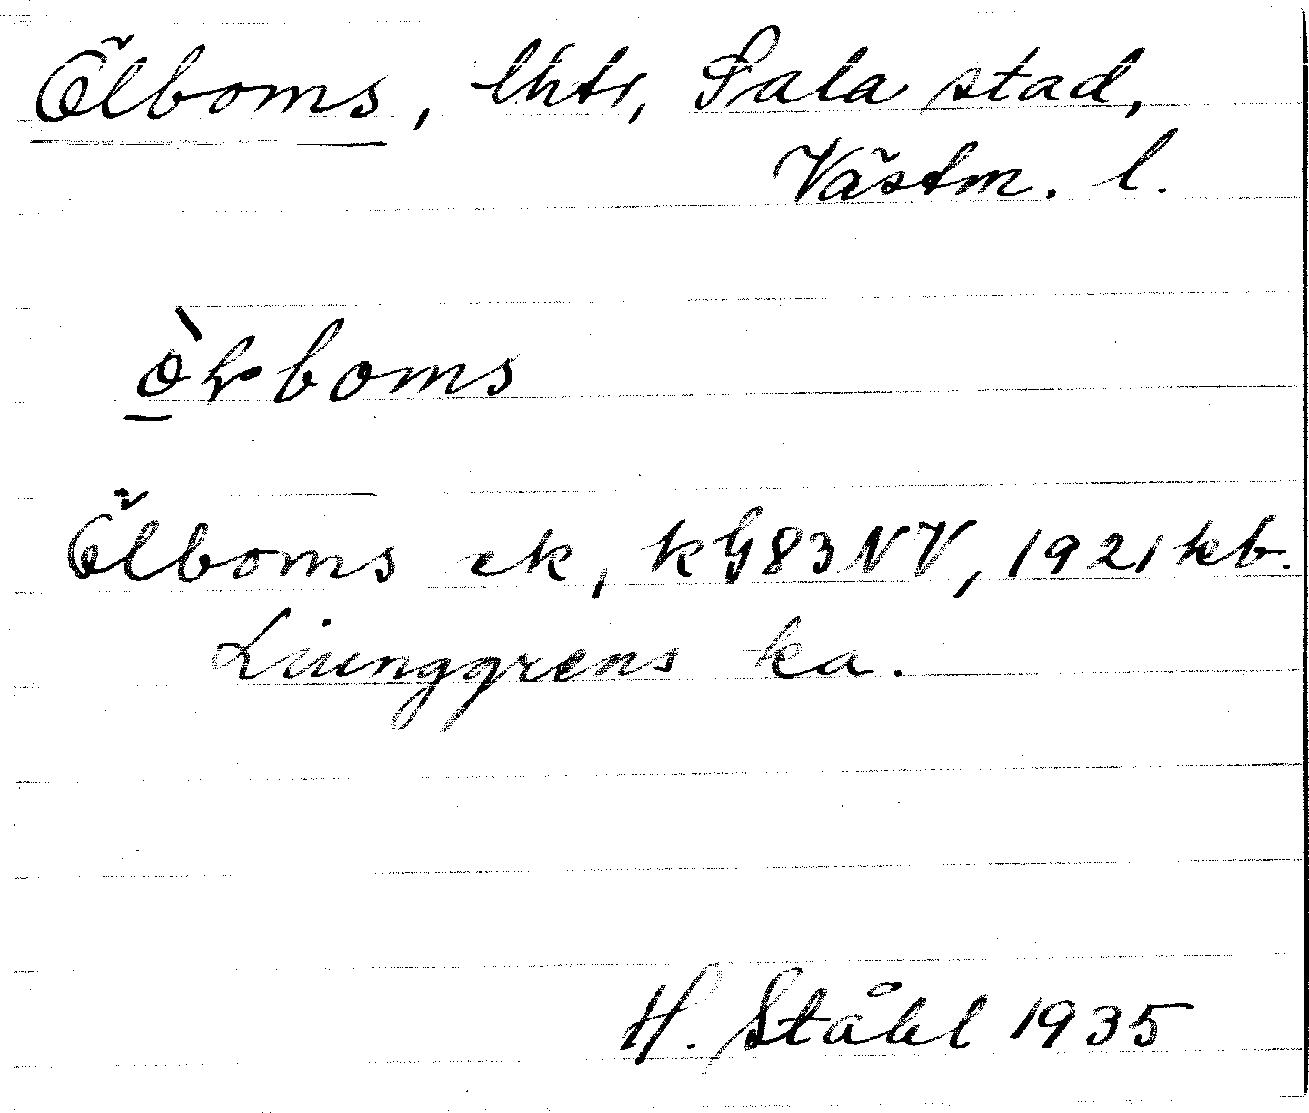 Ölboms, lhtr, Sala stad,
Västm. l.
ò̱ɫboms
Ölboms ek, kG83NV, 1921 kb.
Ljunggrens ka.
H. Ståhl 1935